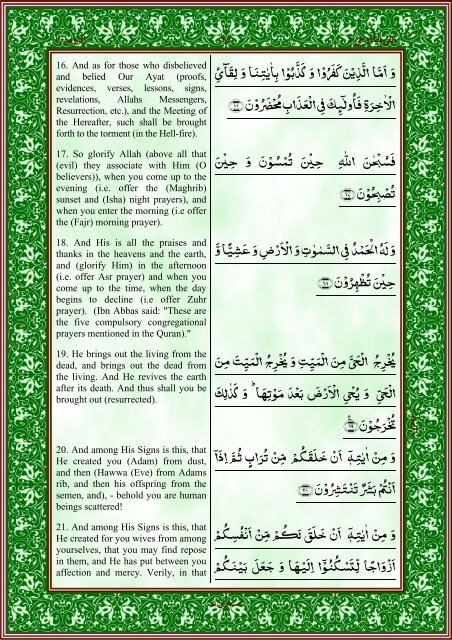 16. And as for those who disbelieved
and belied Our Ayat (proofs,
evidences, verses, lessons, signs,
revelations, Allahs Messengers,
Resurrection, etc.), and the Meeting of
the Hereafter, such shall be brought
forth to the torment (in the Hell-fire).
وَ اَمَّا الَّذِيْنَ كَفَرُوْا وَ كَذَّبُوْا بِاٰيٰتِنَا وَ لِقَآئِ
الْاٰخِرَةِ فَاُولٰٓئِكَ فِي الْعَذَابِ مُحْضَرُوْنَ ﴿۱۶﴾
17. So glorify Allah (above all that
(evil) they associate with Him (O
believers)), when you come up to the
evening (i.e. offer the (Maghrib)
sunset and (Isha) night prayers), and
when you enter the morning (i.e offer
the (Fajr) morning prayer).
فَسُبْحٰنَ اللّٰهِ حِيْنَ تُمْسُوْنَ وَ حِيْنَ
تُصْبِحُوْنَ ﴿۱۷﴾
18. And His is all the praises and
thanks in the heavens and the earth,
and (glorify Him) in the afternoon
(i.e. offer Asr prayer) and when you
come up to the time, when the day
begins to decline (i.e offer Zuhr
prayer). (Ibn Abbas said: "These are
the five compulsory congregational
prayers mentioned in the Quran)."
وَ لَهُ الْحَمْدُ فِي السَّمٰوٰتِ وَ الْاَرْضِ وَ عَشِيًّا وَّ
حِيْنَ تُظْهِرُوْنَ ﴿۱۸﴾
19. He brings out the living from the
dead, and brings out the dead from
the living. And He revives the earth
after its death. And thus shall you be
brought out (resurrected).
يُخْرِجُ الْحَيَّ مِنَ الْمَيِّتِ وَ يُخْرِجُ الْمَيِّتَ مِنَ
الْحَيِّ وَ يُحْيِ الْاَرْضَ بَعْدَ مَوْتِهَا ؕ وَ كَذٰلِكَ
تُخْرَجُوْنَ ﴿۱۹﴾
20. And among His Signs is this, that
He created you (Adam) from dust,
and then (Hawwa (Eve) from Adams
rib, and then his offspring from the
semen, and), - behold you are human
beings scattered!
وَ مِنْ اٰيٰتِهٖۤ اَنْ خَلَقَكُمْ مِّنْ تُرَابٍ ثُمَّ اِذَاۤ
اَنْتُمْ بَشَرٌ تَنْتَشِرُوْنَ ﴿۲۰﴾
21. And among His Signs is this, that
He created for you wives from among
yourselves, that you may find repose
in them, and He has put between you
affection and mercy. Verily, in that
وَ مِنْ اٰيٰتِهٖۤ اَنْ خَلَقَ لَكُمْ مِّنْ اَنْفُسِكُمْ
اَزْوَاجًا لِّتَسْكُنُوْۤا اِلَيْهَا وَ جَعَلَ بَيْنَكُمْ